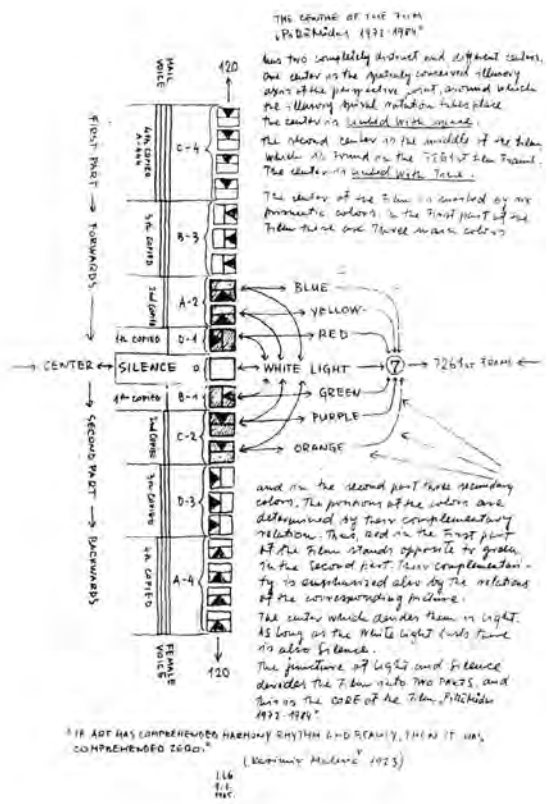 THE CENTRE OF THE FILM
1972-1984"
has two completely distinct and different centers.
One center is the spatially conceived illusory
axis of the perspective point, around which
the illusory spiral rotation takes place
the center is united with space.
the second center is the middle of the film
which is found in the 7261st film frame.
The center is united with Time.
The center of the Film is marked by six
prismatic colors. In the First part of the
Film there are Three main colors
MAIL
VOICE
120
FIRST PART → FORWARDS
4th COPIED
C-4
3th COPIED
B-3
2nd COPIED
A-2
BLUE
YELLOW
1th COPIED
D-1
RED
→ CENTER ↔
SILENCE
WHITE LIGHT
7
→ 7261st FRAME ←
1th COPIED
B-1
GREEN
PURPLE
2nd COPIED
C-2
ORANGE
3th COPIED
D-3
4th COPIED
A-4
SECOND PART → BACKWARDS
FEMALE
VOICE
120
and in the second part three secondary
colors. The positions of the colors are
determined by their complementary
relation. Thus, Red in the First part
of the Film stands opposite to green
in the Second part. Their complementari-
ty is emphasized also by the rotations
of the corresponding picture.
The center which divides them is Light.
As long as the White light lasts there
is also Silence.
The juncture of Light and Silence
devides the Film into TWO PARTS, and
this is the CORE of the Film
1972-1984"
"IF ART HAS COMPREHENDED HARMONY RHYTHM AND BEAUTY, THEN IT HAS
COMPREHENDED ZERO."
1923)